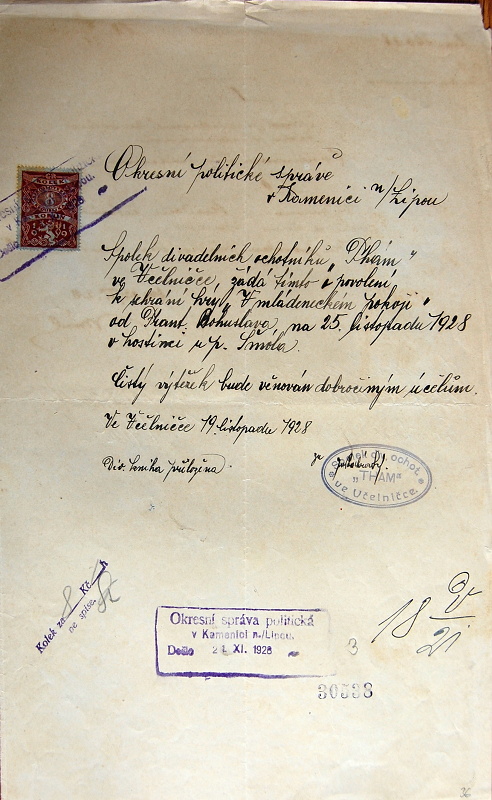 Okresní politické správě
v Kamenici n/Lipou
Spolek divadelních ochotníků „Thám"
ve Včelničce, žádá tímto o povolení
k sehrání hry „V mládeneckém pokoji"
od Frant. Bohuslava, na 25. listopadu 1928
v hostinci u p. Šmóla.
Čistý výtěžek bude věnován dobročiným účelům.
Ve Včelničce 19. listopadu 1928
Div. kniha přiložena.
za
Spolek div. ochot.
„THÁM"
ve Včelničce.
Kolek za 8 Kč h
na spise.
Okresní správa politická
v Kamenici n./Lipou.
Došlo 21. XI. 1928
3
30538
18 V/21
36